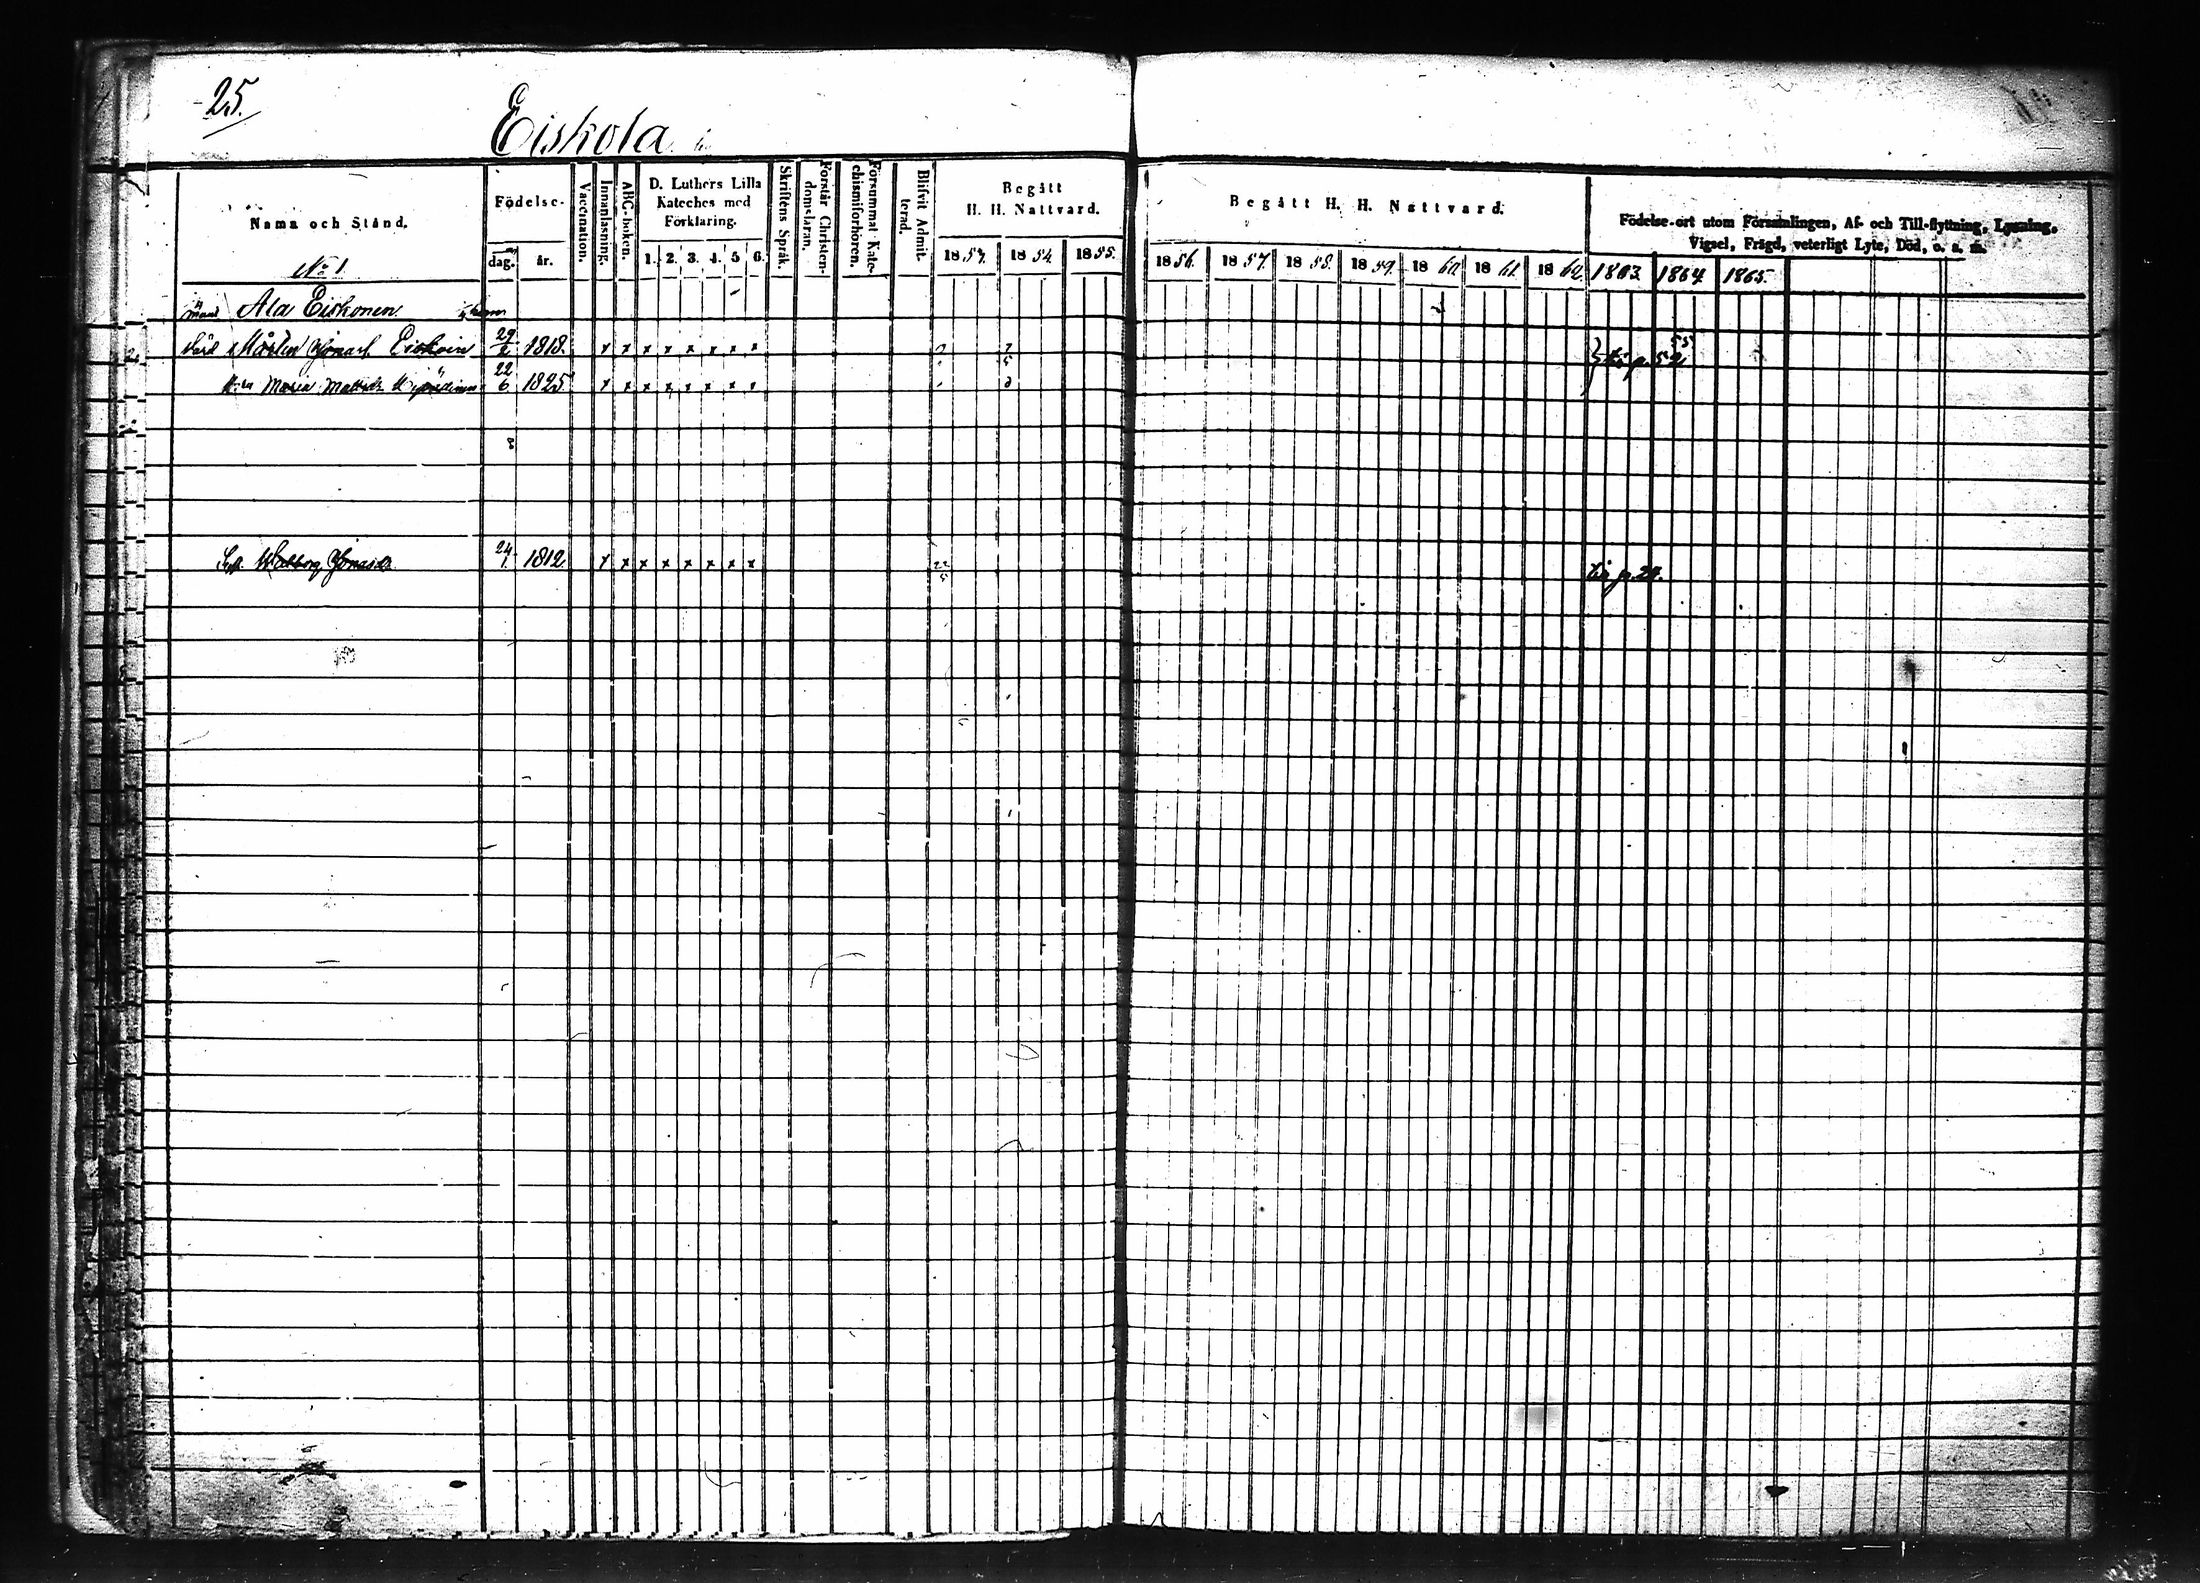 25.
Eiskola
Namn och Stånd.
Födelse-
dag.
år.
Vaccination.
Innanläsning.
ABC-boken.
D. Luthers Lilla
Kateches med
Förklaring.
1. 2. 3. 4. 5 6.
Skriftens Språk.
Förstår Christen-
domsläran.
Försummat Kate-
chismiförhören.
Blifvit Admit-
terad.
Begått
H. H. Nattvard.
1853. 1854. 1855.
Begått H. H. Nattvard.
1856. 1857. 1858. 1859. 1860. 1861. 1862.
Födelse-ort utom Församlingen, Af- och Till-flyttning, Lysning,
Vigsel, Frägd, veterligt Lyte, Död, o. s. m.
1863. 1864 1865.
No 1
Ala Eiskonen
Mårten Eiskoin 29/2 1818. x x x x x x x x
Maria 22/6 1825 x x x x x x x x
Walborg Jonasd. 24/1 1812 x x x x x x x x 22/5 p. 24.